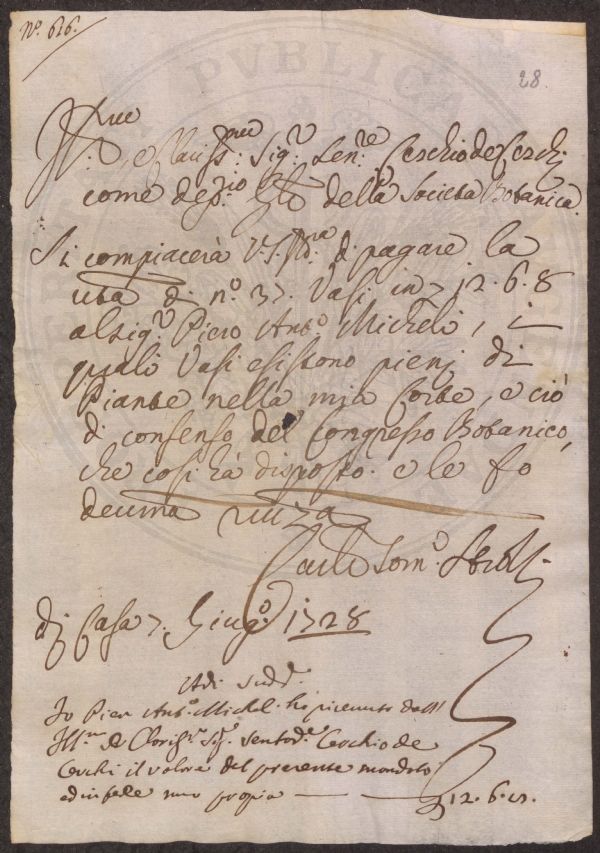 N.º 616.
28
Ill.mo e Clariss.mo Sig.r Sen.re Cerchio de Cerchi
come dep.rio della Società Botanica.
Si compiacerà V.S. Ill.ma di pagare la
di n.º 37. Vasi in 12.6.8
al Sig.r Piero Ant.º Micheli, i
quali Vasi esistono pieni di
Piante nella mia Corte, e ciò
di consenso del Congresso Botanico,
che così hà disposto. e le fo
riv.za
Tom.º
Di Casa 7. Giug.º 1728
Adi sudd.º
Io Pier Ant.º Micheli hò ricevuto dall
Ill.mo e Clariss.º Sig.r Cerchio de
Cerchi il valore del presente mandato
ed in fede mano propria — — 12.6.8.